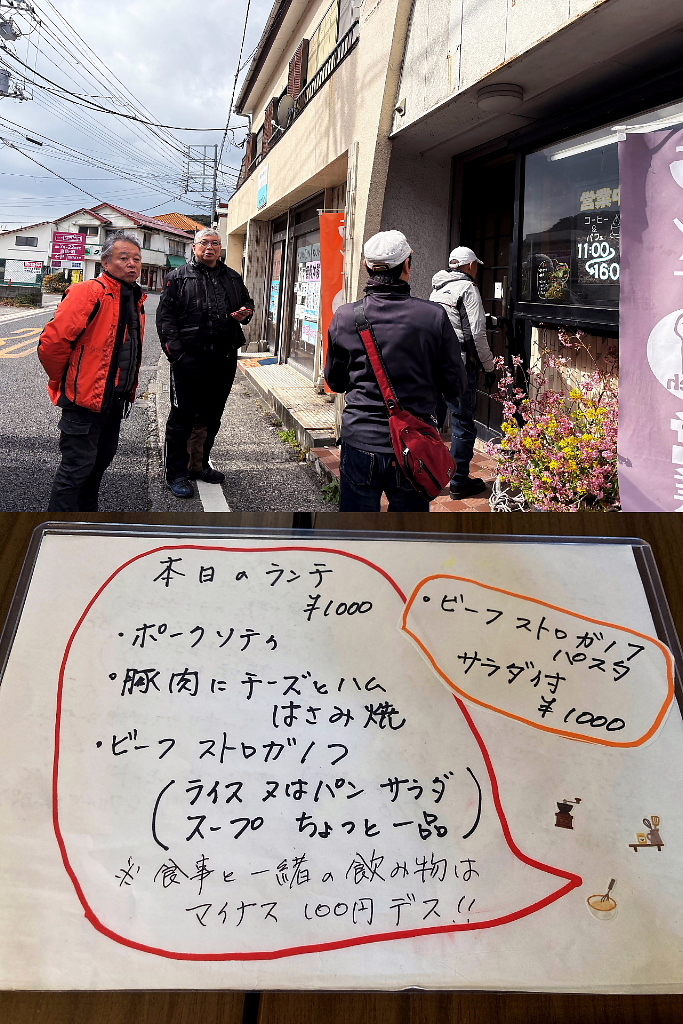 営業中
コーヒー
&
パフェ
11:00
160
本日のランチ
¥1000
・ポークソティ
・豚肉にチーズとハム
はさみ焼
・ビーフストロガノフ
(ライス又はパン サラダ
スープ ちょっと一品)
※食事と一緒の飲み物は
マイナス100円デス!!
・ビーフストロガノフ
パスタ
サラダ付
¥1000